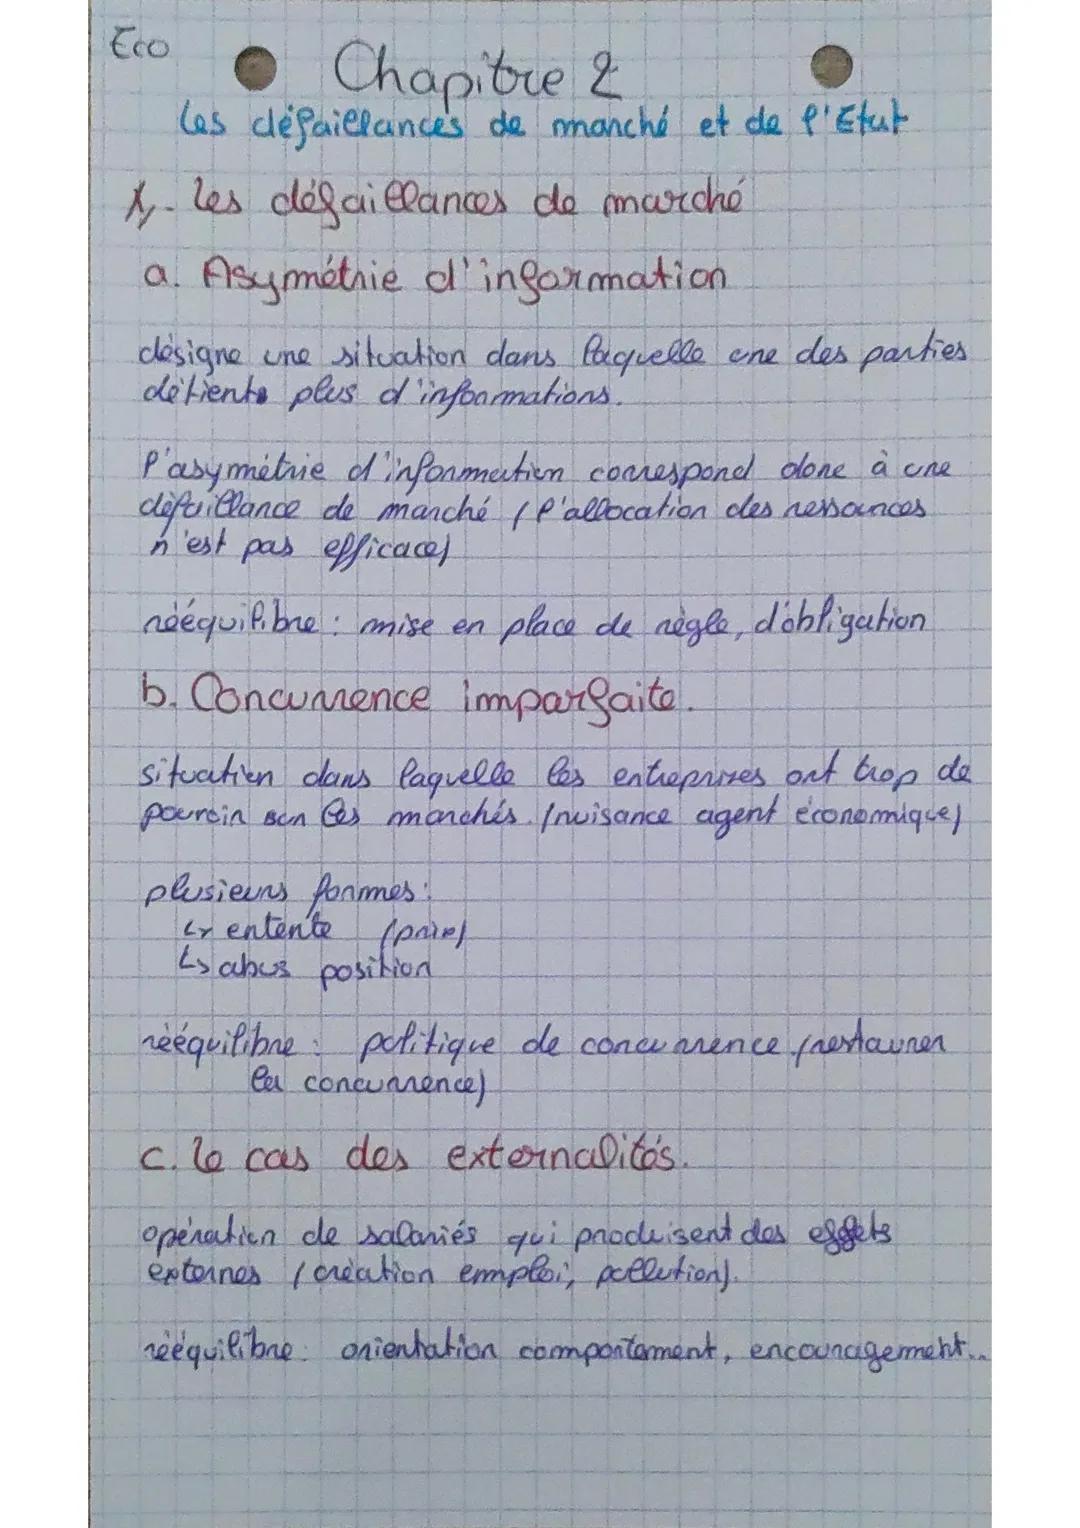 Eco
Chapitre 2
Les défaillances de marché et de l'Etat
1. Les défaillances de marché
a. Asymétrie d'information
désigne une situation dans laquelle une des parties
détients plus d'informations.
l'asymétrie d'information correspond donc à une
défaillance de marché (l'allocation des ressources
n'est pas efficace)
rééquilibre : mise en place de règle, d'obligation
b. Concurrence imparfaite.
situation dans laquelle les entreprises ont trop de
pouvoir sur les marchés. (nuisance agent économique)
plusieurs formes :
↳ entente (prix)
↳ abus position
rééquilibre : politique de concurrence (restaurer
la concurrence)
c. le cas des externalités.
opération de salariés qui produisent des effets
externes (création emploi, pollution).
rééquilibre : orientation comportement, encouragement...